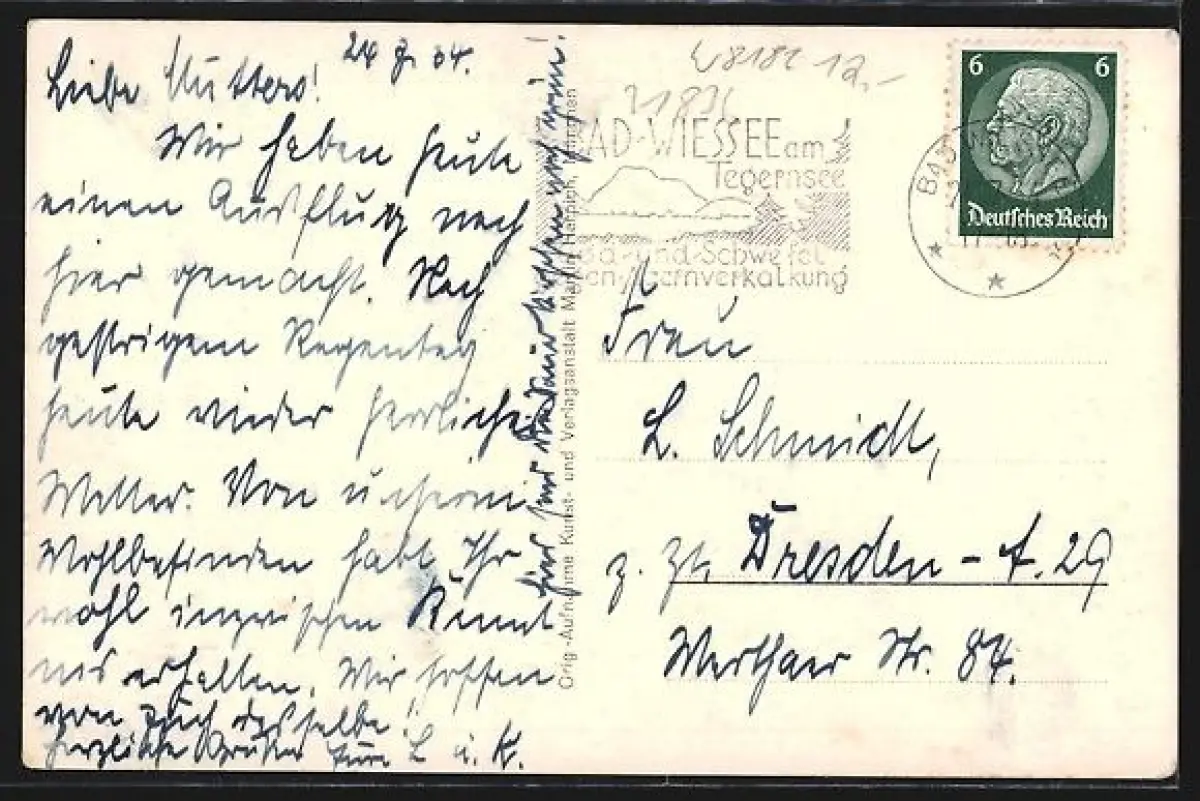 24. 7. 34.
Liebe Mutters!
Wir haben heute
einen Ausflug nach
hier gemacht. Nach
gestrigem Regentag
heute wieder herrliches
Wetter. Von unserm
Wohlbefinden habt Ihr
wohl inzwischen Kennt
nis erhalten. Wir hoffen
von Euch dasselbe!
Herzliche Grüße Eure L u. K.
Hier sind die
Orig.-Aufnahme Kunst- und Verlagsanstalt Martin Herpich, München
12,-
BAD-WIESSEE am
Tegernsee
Jod- und Schwefel
Adernverkalkung
BAD
6 6
Deutsches Reich
Frau
L. Schmidt,
z. Zt. Dresden - A. 29
Werthaer Str. 84.